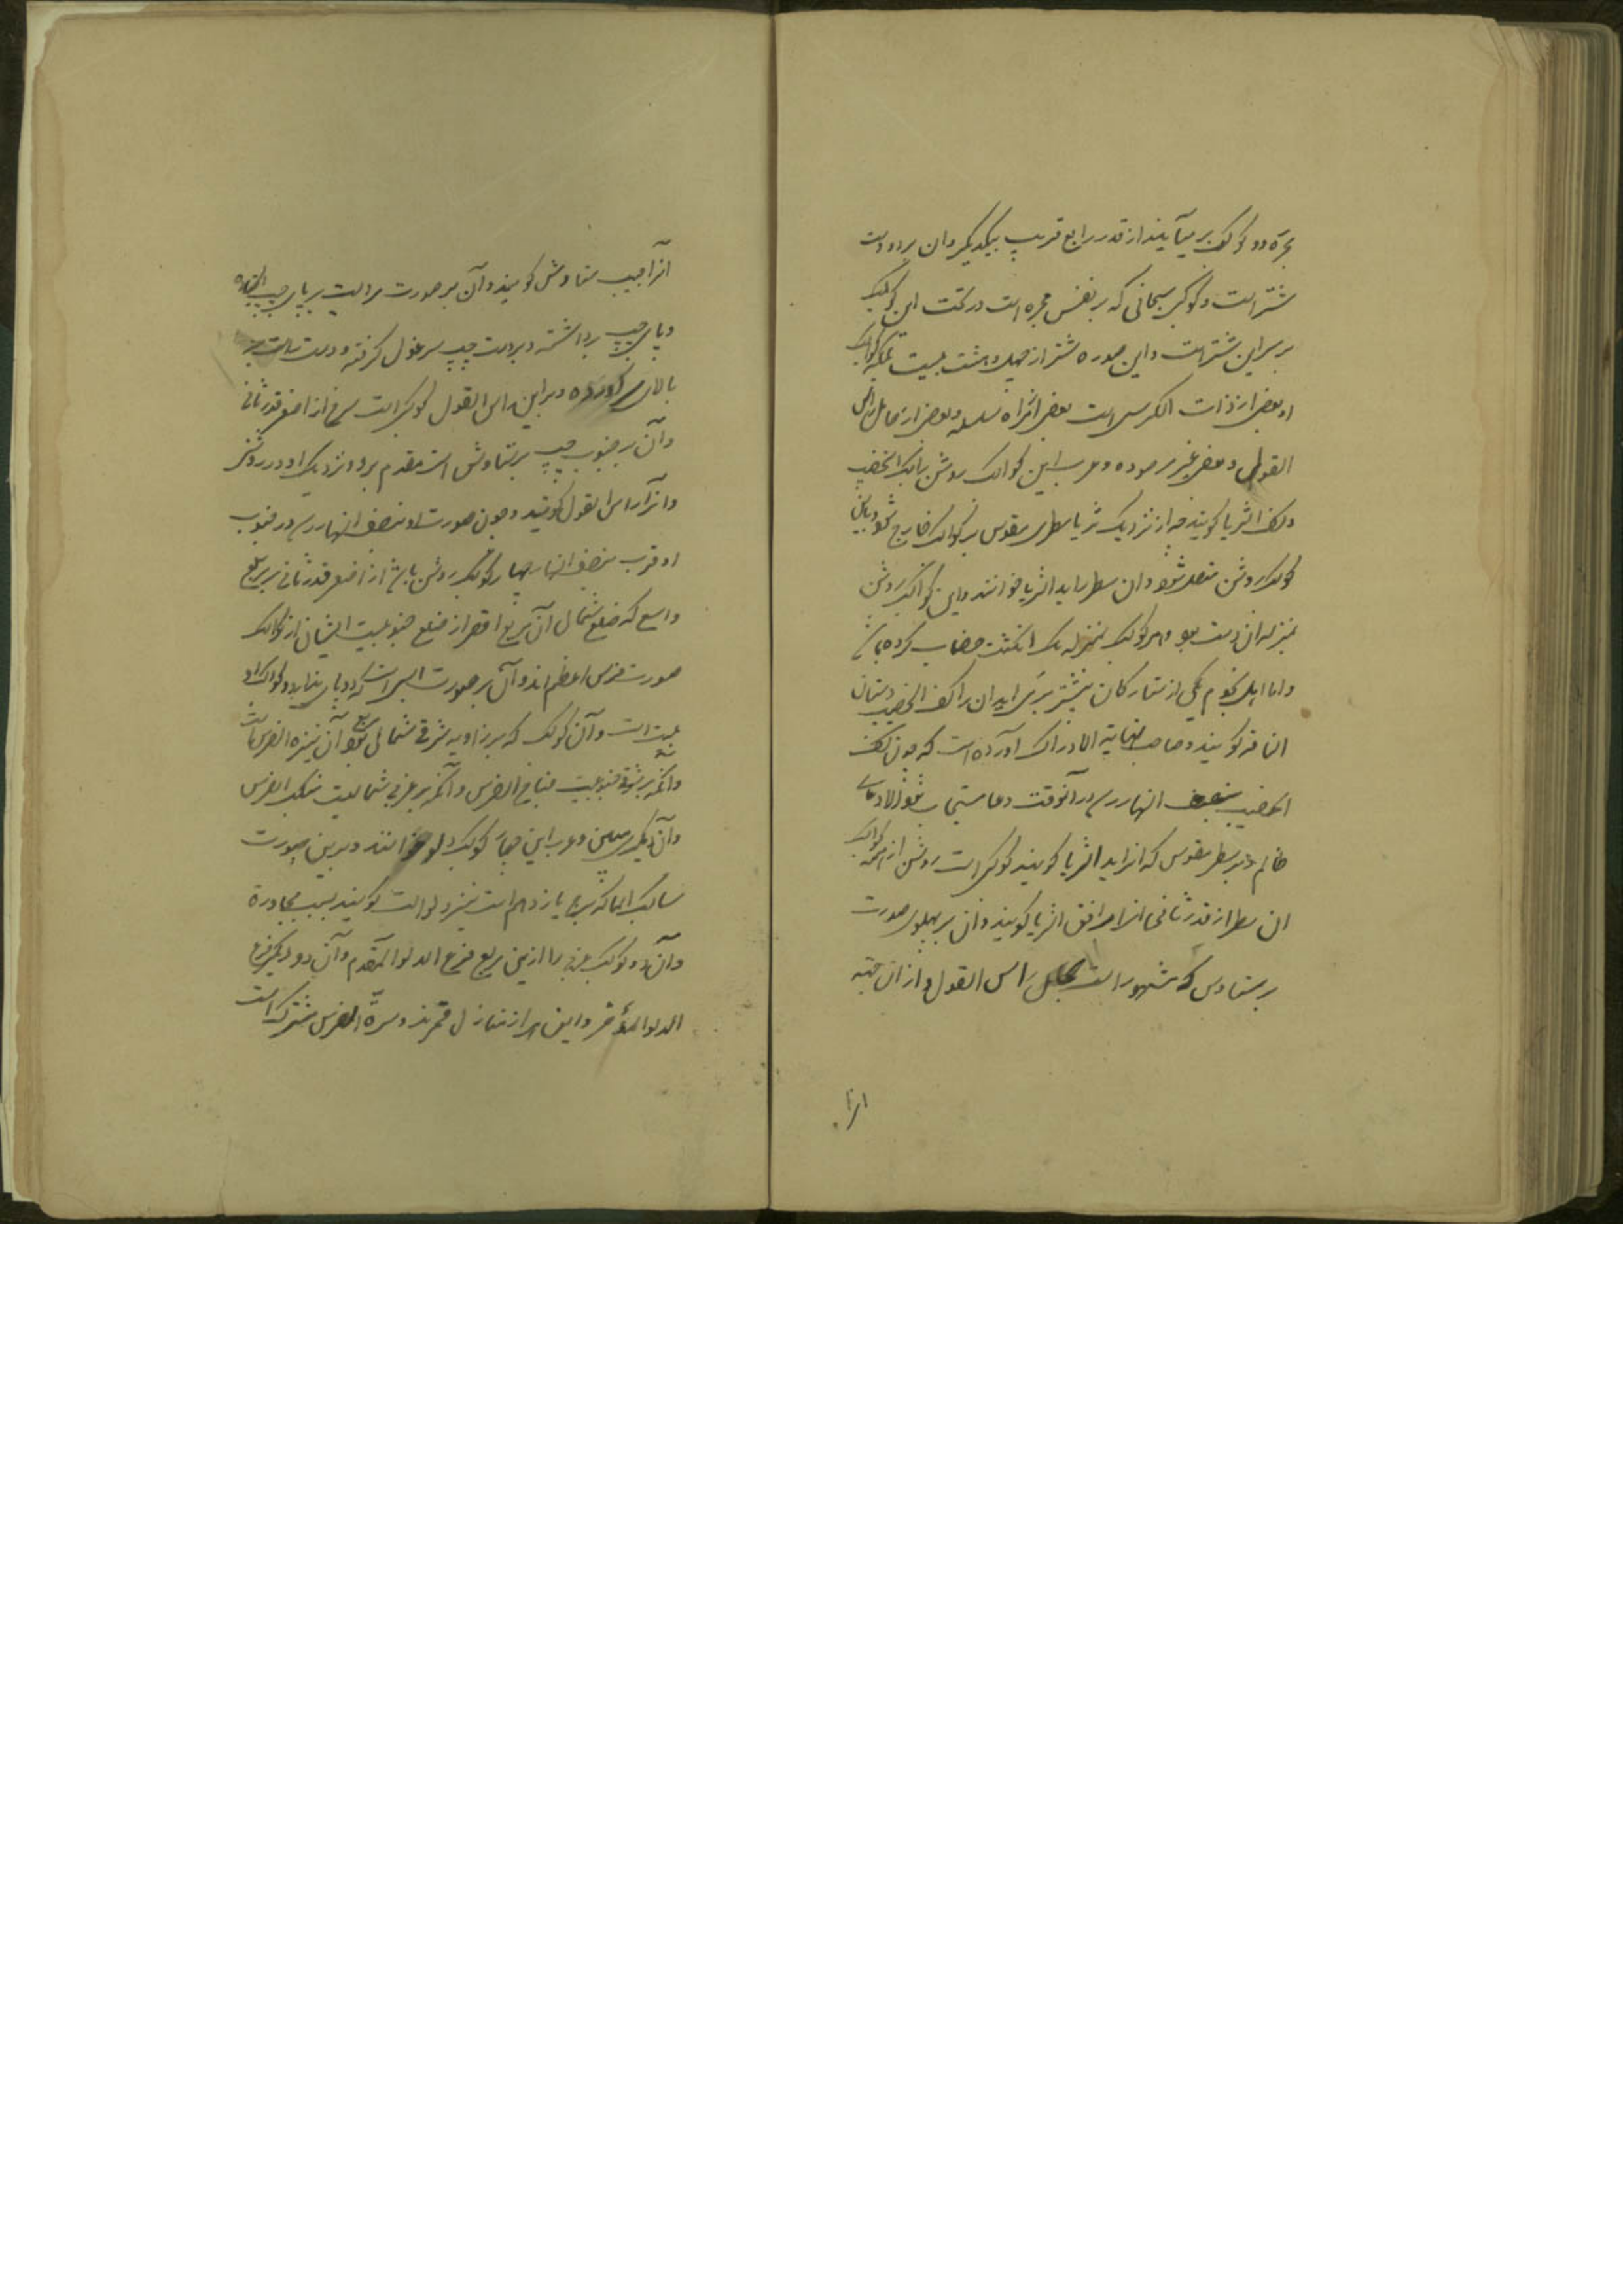 مجره دو کوکب برمیآیند از قدر رابع قریب بیکدیگر وان بر دو دست
شتر است و کوکبی سحابی که بر نفس مجره است در تحت این کوکب
بر سر این شتر است و این صوره شتر از چهل و هشت نیست بلکه کواکب
او بعضی از ذات الکرسی است بعضی از مراة مسلسله و بعضی از حامل راس
الغول و بعضی غیر مرصوده و عرب این کواکب روشن را کف الخضیب
و کف الثریا گویند چه از نزدیک ثریا سطری مقوس بر کواکب خارج شود و باین
کوکب روشن متصل شود و ان سطر را ید الثریا خوانند و این کواکب روشن
بمنزله ان دست بود و هر کوکب بمنزله یک انگشت خضاب کرده باشد
و اما اهل نجوم یکی از ستارگان پیشتر بر سر ایران را کف الخضیب و سنام
الناقه گویند و صاحب نهایة الادراک آورده است که چون کف
الخضیب بنصف النهار رسد در آنوقت دعا مستجاب شود الا دعای
ظالم و بر سطر مقوس که انرا ید الثریا گویند کوکبی است روشن از همه کواکب
ان سطر از قدر ثانی انرا مرافق الثریا گویند و ان بر پهلوی صورت
برشاوس که مشهور است بحامل راس الغول و از ان جهة
انرا
انرا جنب برشاوش گویند و آن بر صورت مردیست بر پای چپ ایستاده
و پای چپ برداشته و بدست چپ سر غول گرفته و دست راست بر
بالای سر آورده و بر این راس الغول کوکبی است سرخ از اصغر قدر ثانی
و آن بر جنوب جنب برشاوش است مقدم برو و نزدیک او در روشنی
و آنرا راس الغول گویند و چون صورت او بنصف النهار رسد در جنوب
او قرب بنصف النهار چهار کوکب روشن باشد از اصغر قدر ثانی بر مربع
واسع که ضلع شمالی آن مربع اقصر از ضلع جنوبیست ایشان از کواکب
صورت فرس اعظم اند و آن بر صورت اسبی است که دو پای ندارد و کواکب او
بیست است و آن کوکب که بر زاویه شرقی شمالی مربع بود آن سره الفرس باشد
و آنکه بر شرقی جنوبیست جناح الفرس و آنکه بر غربی شمالیست منکب الفرس
و آن دیگری متن و عرب این چهار کوکب را دلو خوانند و بدین صورت
ساکب الما که برج یازدهم است نیز دلو است گویند بسبب مجاورة
و آن دو کوکب غربی را ازین مربع فرغ الدلو المقدم و آن دو دیگر فرغ
الدلو المؤخر و این هر از منازل قمرند و سرة الفرس مشترک است